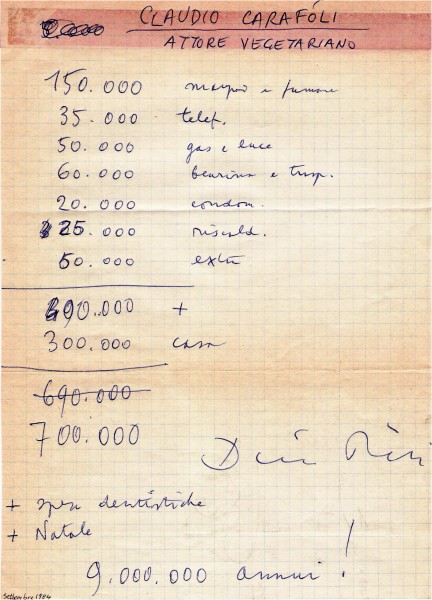 CLAUDIO CARAFÓLI
ATTORE VEGETARIANO
150.000 e fumare
35.000 telef.
50.000 gas e luce
60.000 benzina e trasp.
20.000 condom.
25.000 riscald.
50.000 extra
390.000 +
300.000 casa
690.000
700.000
+ spese dentistiche
+ Natale
9.000.000 annui !
Settembre 1984